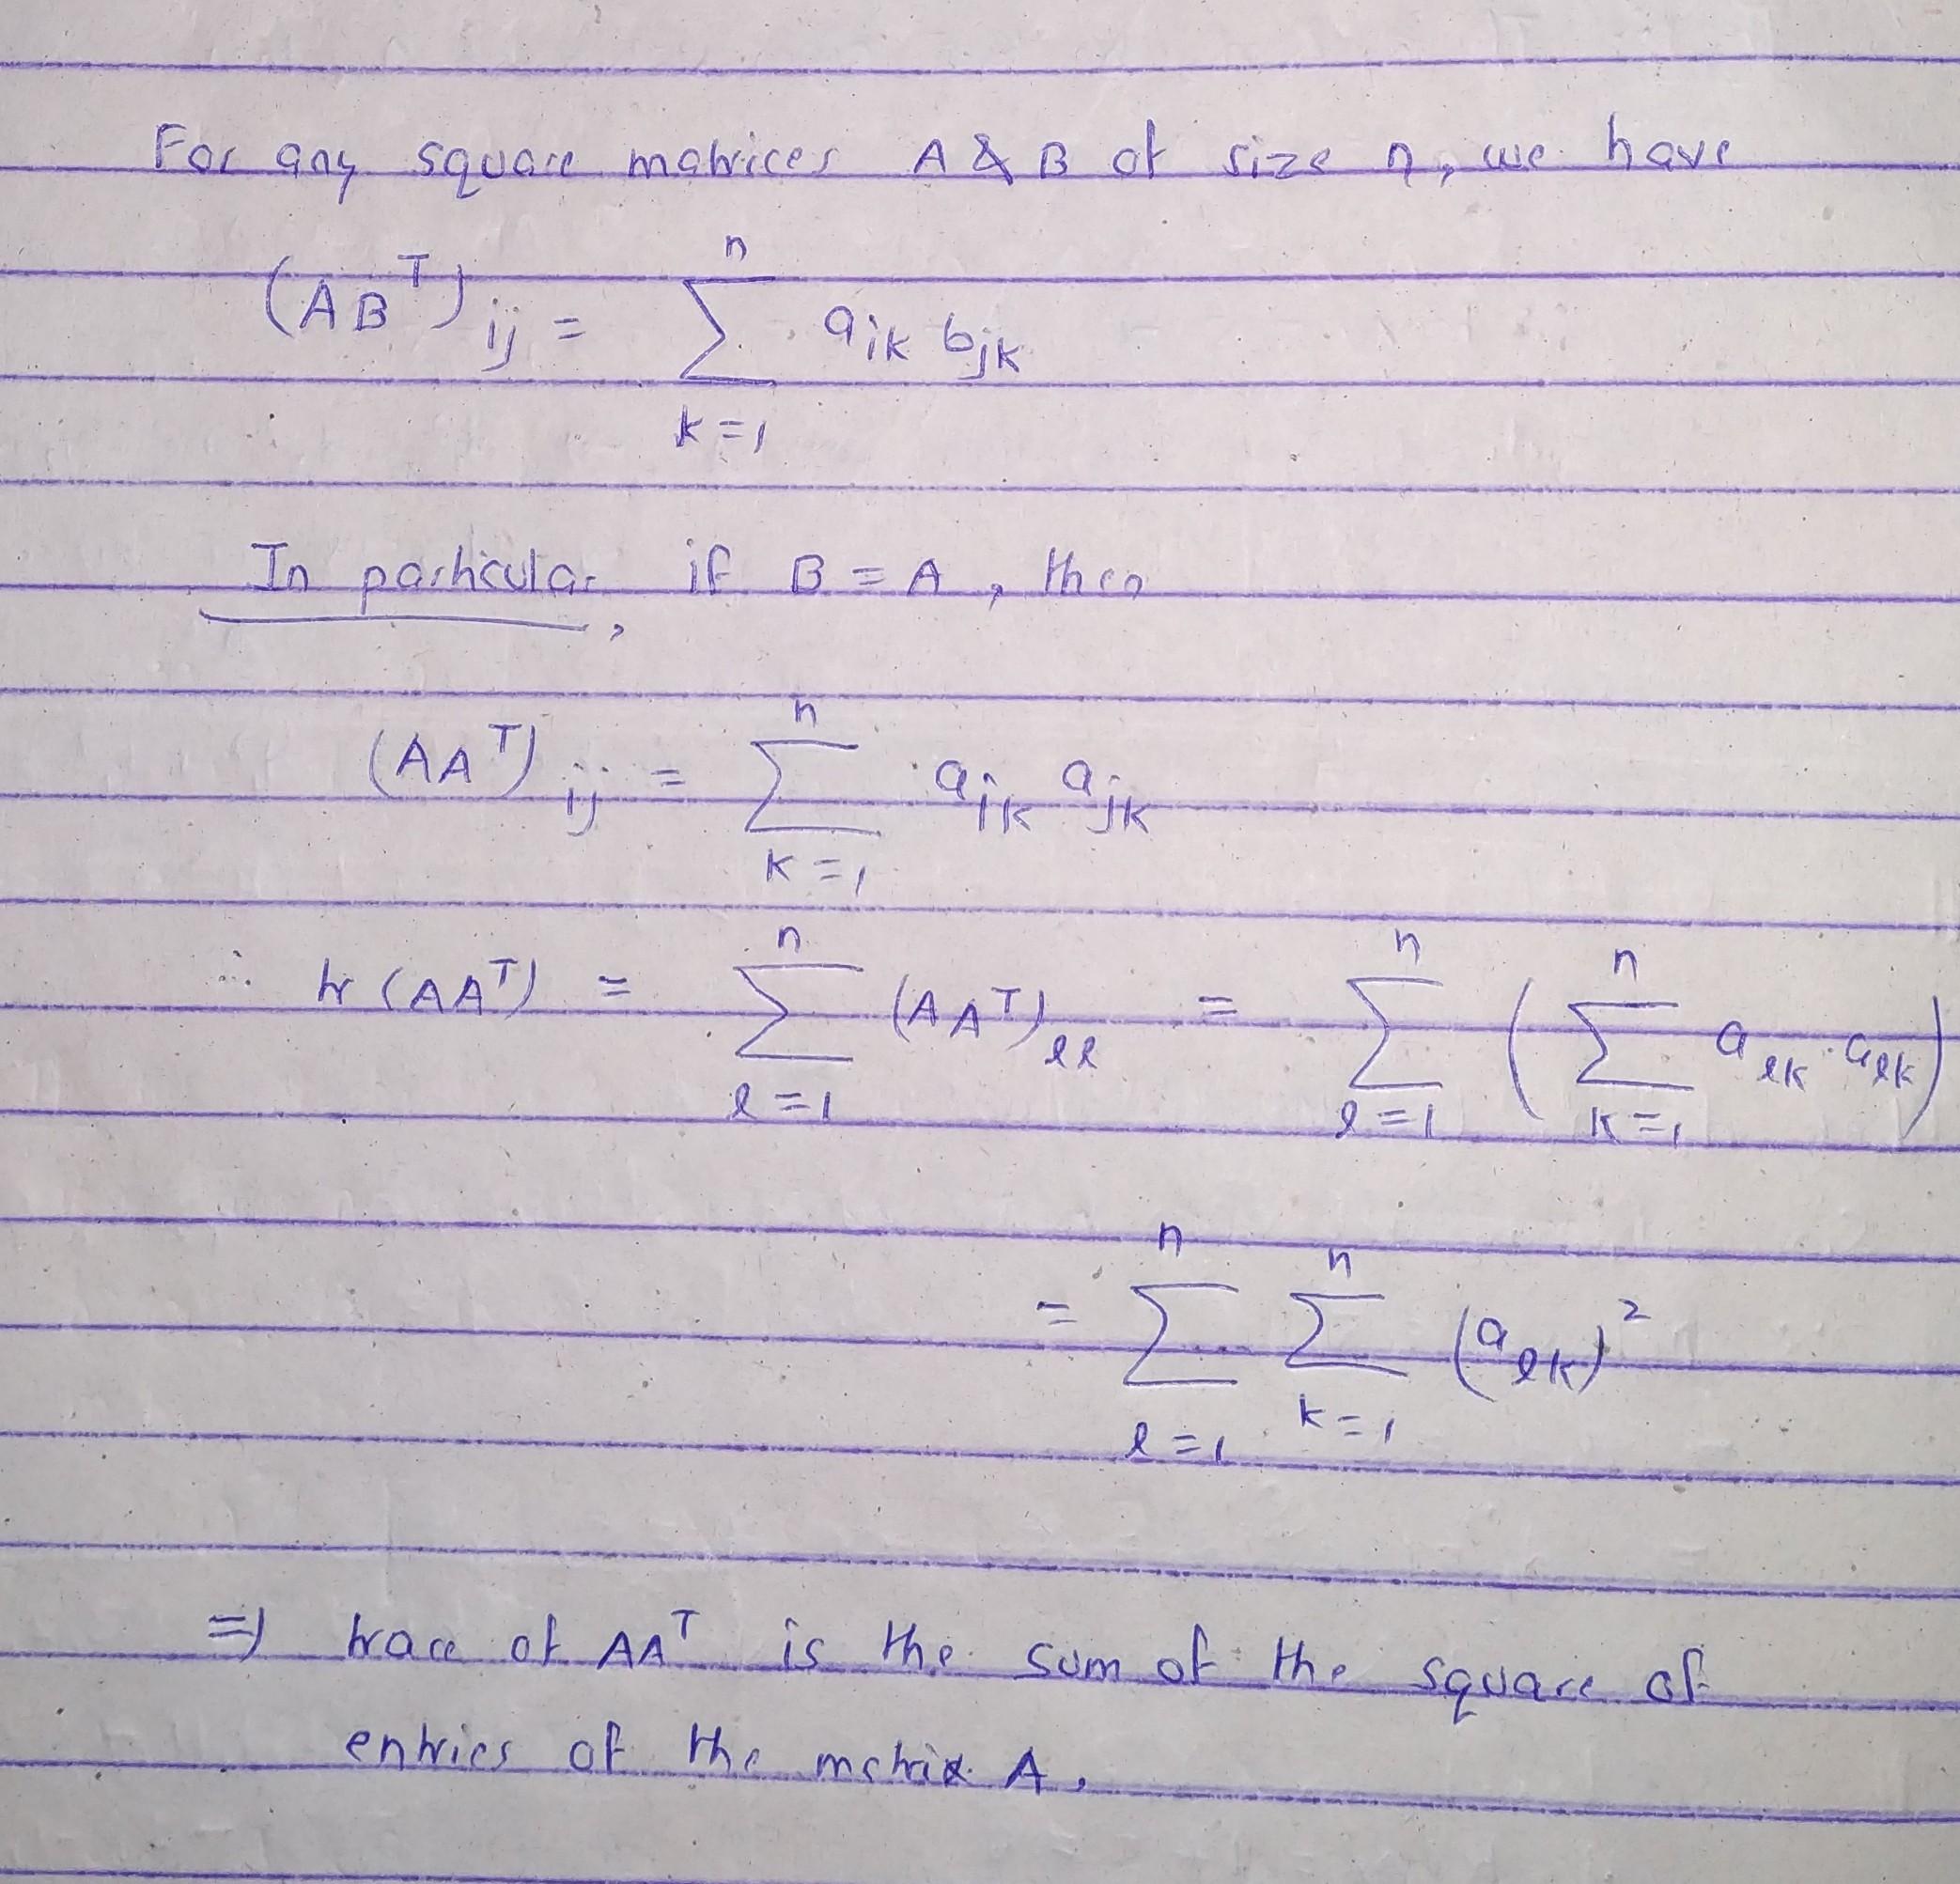 For any square matrices A & B of size n, we have
(AB^T)_ij = \sum_{k=1}^{n} a_ik b_jk
In particular, if B = A, then
(AA^T)_ij = \sum_{k=1}^{n} a_ik a_jk
∴ tr (AA^T) = \sum_{l=1}^{n} (AA^T)_ll = \sum_{l=1}^{n} ( \sum_{k=1}^{n} a_lk · a_lk )
= \sum_{l=1}^{n} \sum_{k=1}^{n} (a_lk)^2
⇒ trace of AA^T is the sum of the square of
entries of the matrix A.